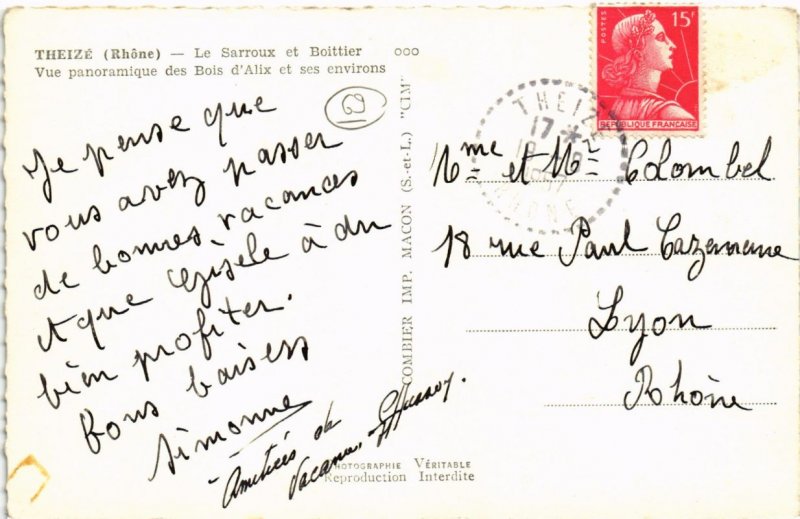 THEIZÉ (Rhône) — Le Sarroux et Boittier ooo
Vue panoramique des Bois d'Alix et ses environs
69
Je pense que
vous avez passer
de bonnes vacances
et que Gisèle à du
bien profiter.
Bons baisers
Simonne
Amitiés de
Vacances.
COMBIER IMP. MACON (S.-et-L.) "CIM"
PHOTOGRAPHIE VÉRITABLE
Reproduction Interdite
POSTES
15F
REPUBLIQUE FRANÇAISE
THEIZÉ
17
RHONE
Mme et Mr Colombel
18 rue Paul Cazeneuve
Lyon
Rhône